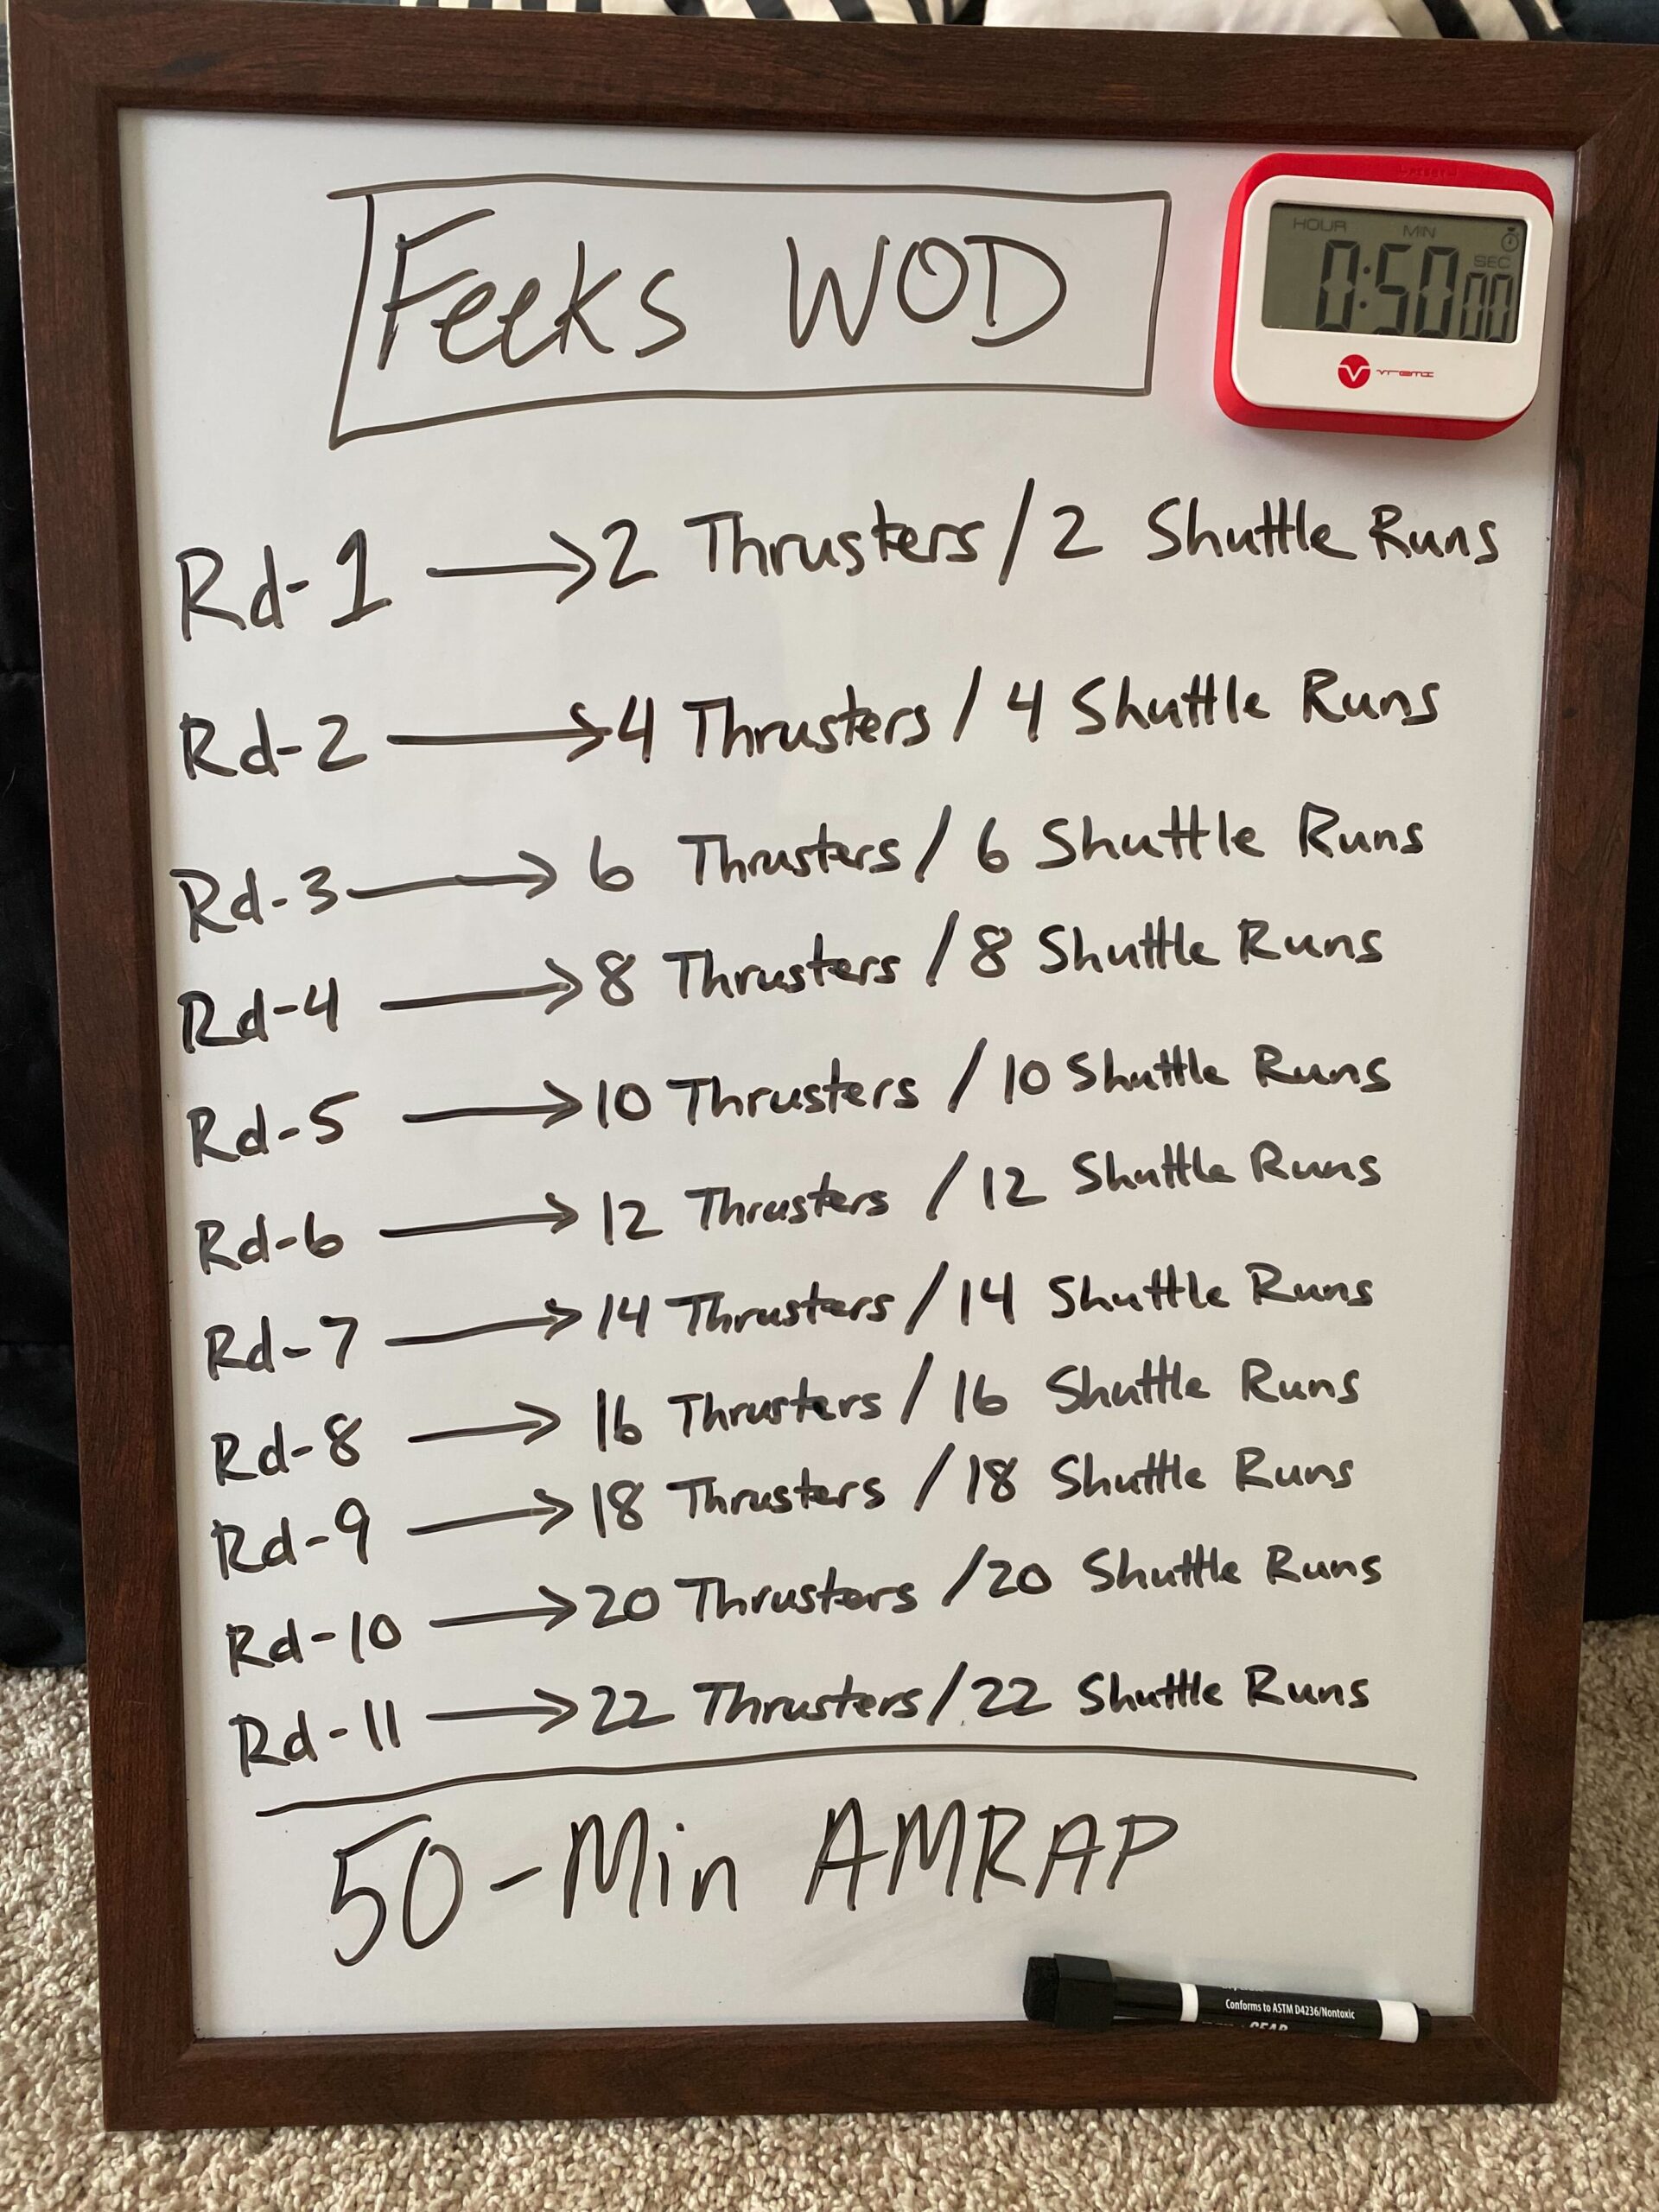 Feeks WOD
HOUR MIN
SEC
0:50 00
vremi
Rd-1 → 2 Thrusters / 2 Shuttle Runs
Rd-2 → 4 Thrusters / 4 Shuttle Runs
Rd-3 → 6 Thrusters / 6 Shuttle Runs
Rd-4 → 8 Thrusters / 8 Shuttle Runs
Rd-5 → 10 Thrusters / 10 Shuttle Runs
Rd-6 → 12 Thrusters / 12 Shuttle Runs
Rd-7 → 14 Thrusters / 14 Shuttle Runs
Rd-8 → 16 Thrusters / 16 Shuttle Runs
Rd-9 → 18 Thrusters / 18 Shuttle Runs
Rd-10 → 20 Thrusters / 20 Shuttle Runs
Rd-11 → 22 Thrusters / 22 Shuttle Runs
50-Min AMRAP
Conforms to ASTM D4236/Nontoxic